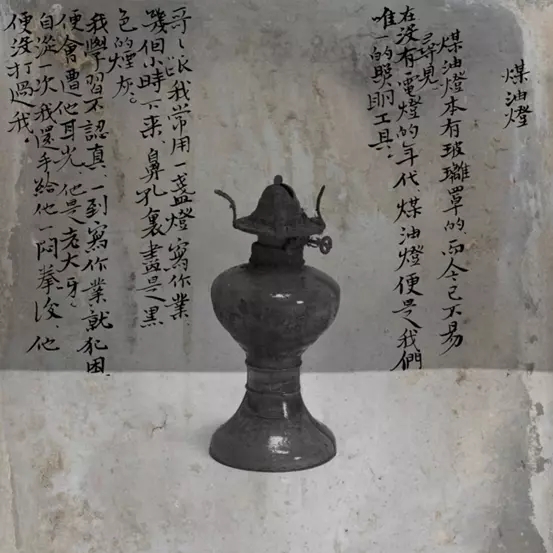 煤油燈
煤油燈本有玻璃罩的，而今已不易
尋見。
在没有電燈的年代，煤油燈便是我們
唯一的照明工具。
哥〻跟我常用一盏燈寫作業，
幾個小時下来，鼻孔裏盡是黑
色的煙灰。
我學習不認真，一到寫作業就犯困，
便會遭他耳光，他是老大呀。
自從一次我還手給他一悶拳後，他
便没打過我。